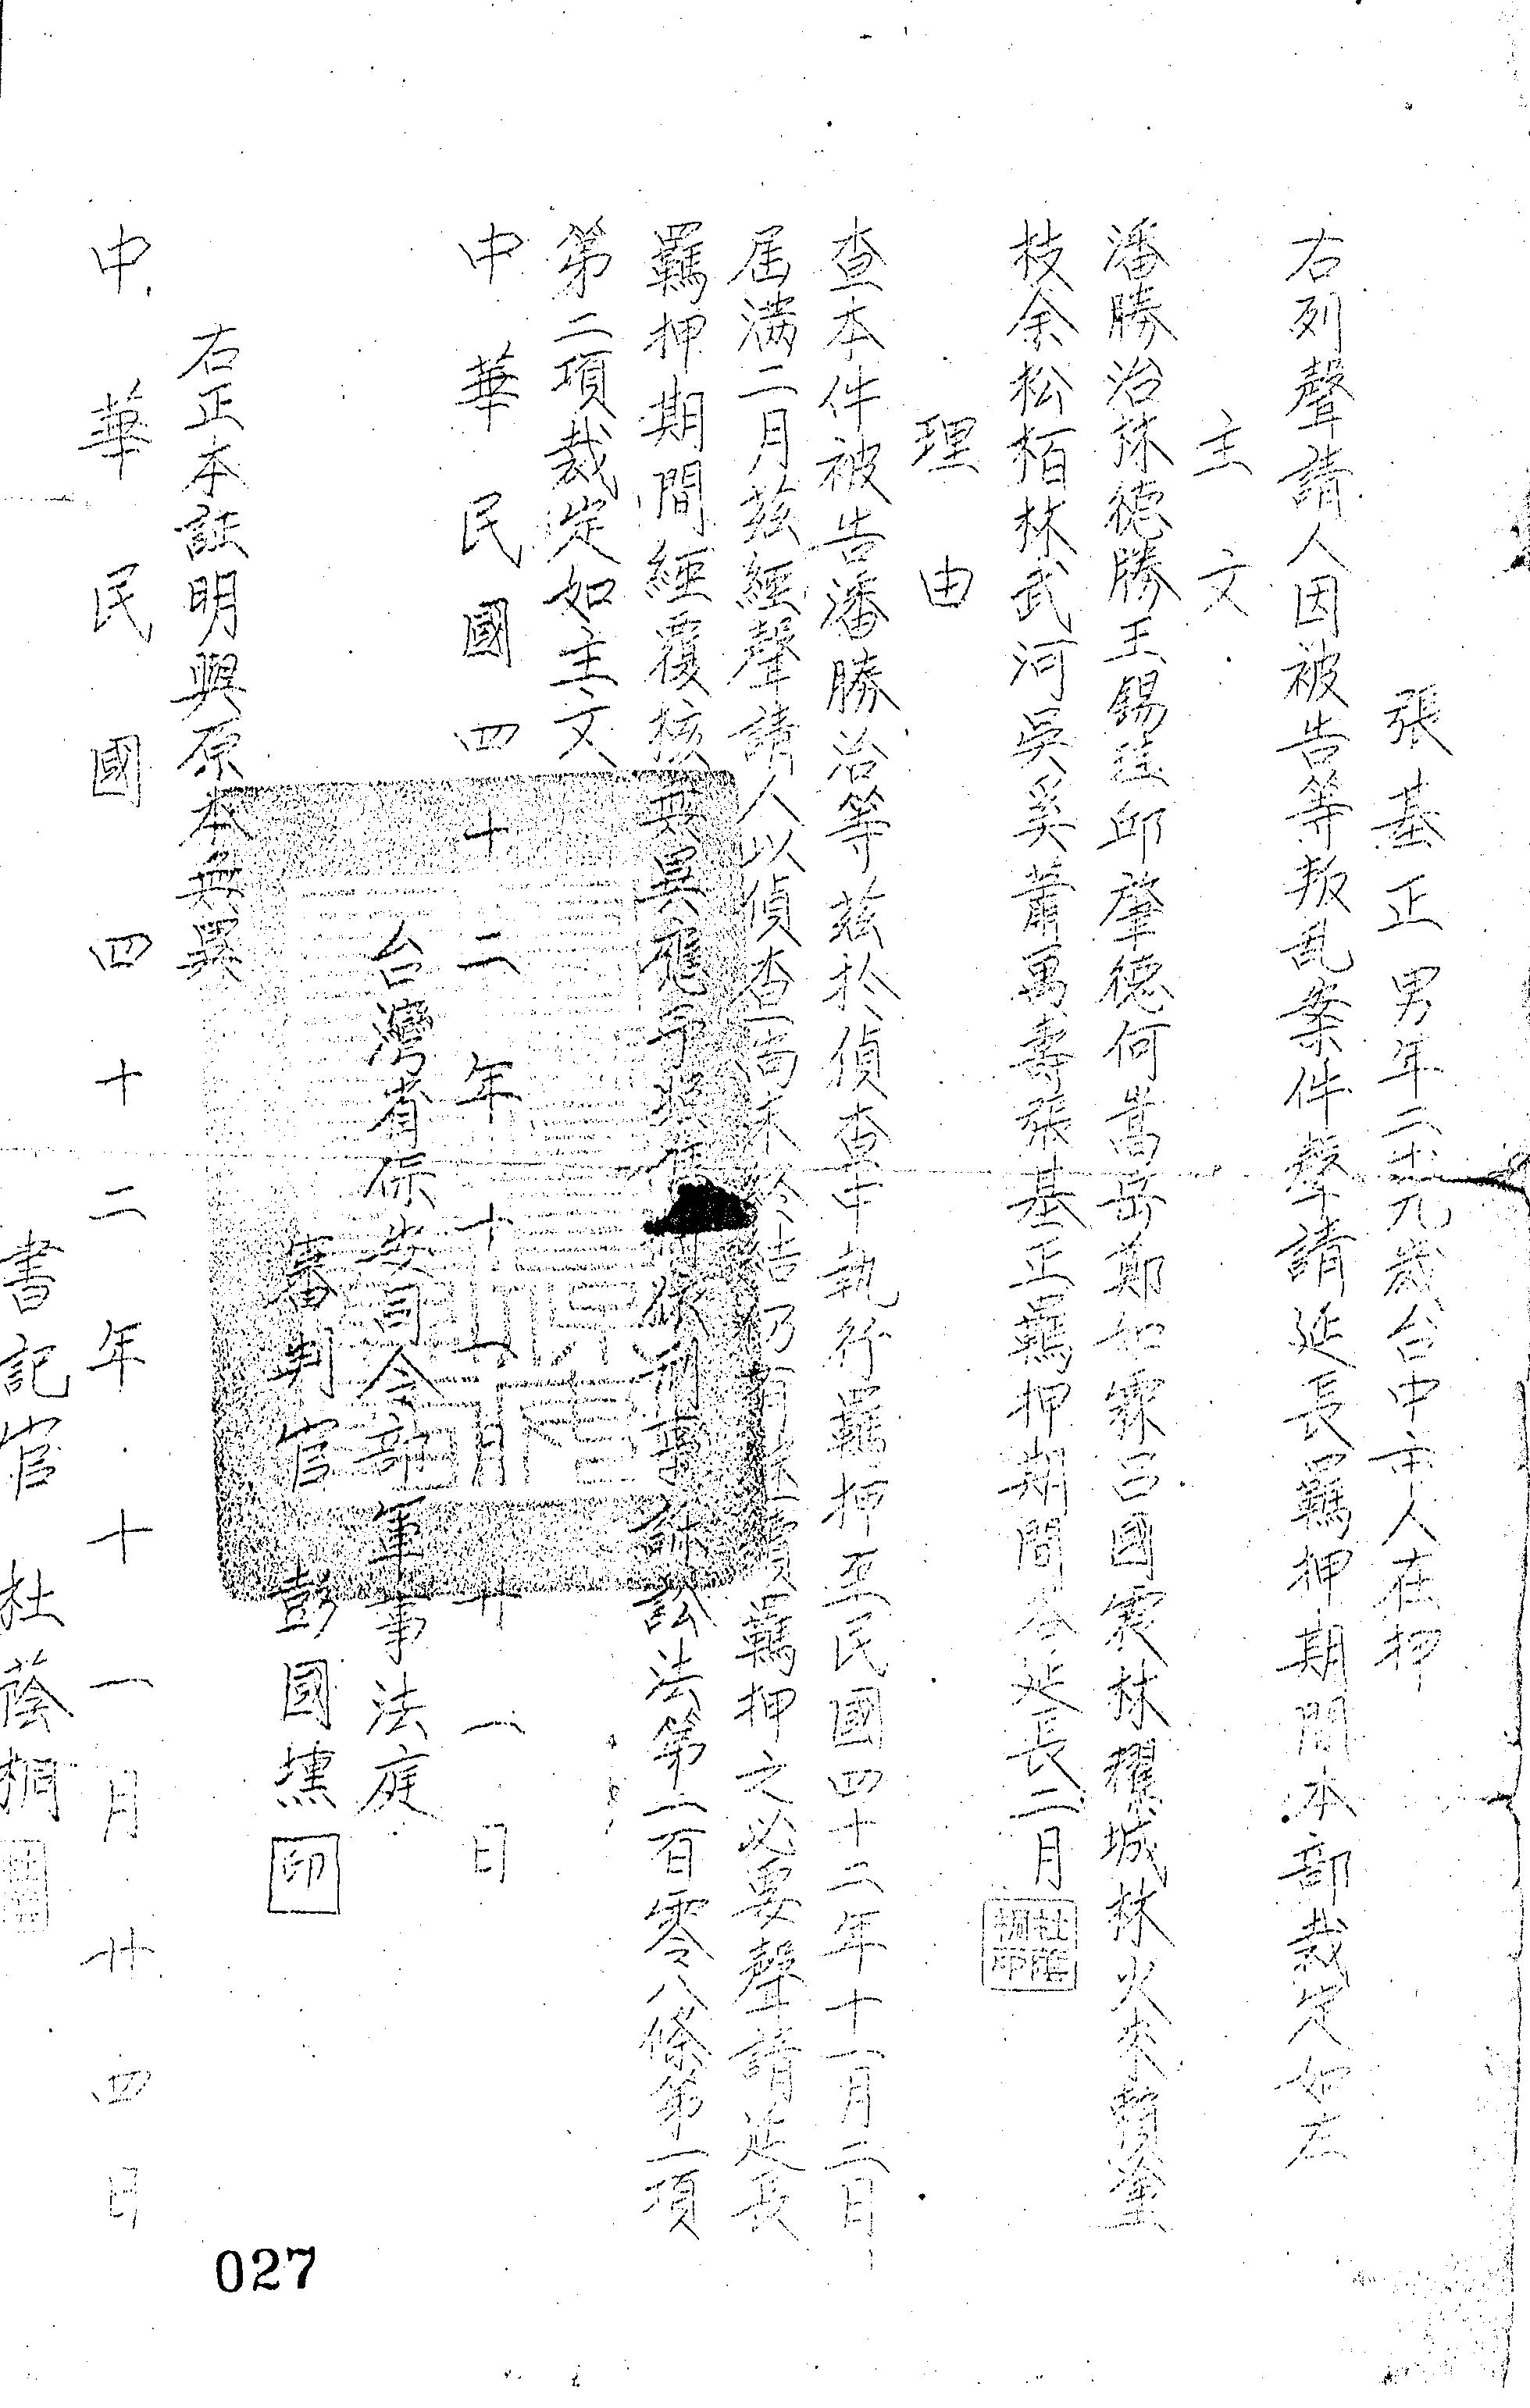 張基正男年二十九歲台中市人在押
右列聲請人因被告等叛乱案件聲請延長羈押期間本部裁定如左
主文
潘勝治林德勝王錫珪邱肇德何嵩岳鄭如霖呂國震林耀城林火來賴塗
枝余松栢林武河吳奚蕭萬壽張基正羈押期間各延長二月
杜蔭桐印
理由
查本件被告潘勝治等茲於偵查中執行羈押至民國四十二年十一月二日
屆滿二月茲經聲請人以偵查尚未終結仍有繼續羈押之必要聲請延長
羈押期間經覆核無異應予照准依刑事訴訟法第一百零八條第一項
第二項裁定如主文
中華民國四十二年十一月廿一日
台灣省保安司令部軍事法庭
審判官彭國壎印
右正本証明與原本無異
中華民國四十二年十一月廿四日
書記官杜蔭桐
027